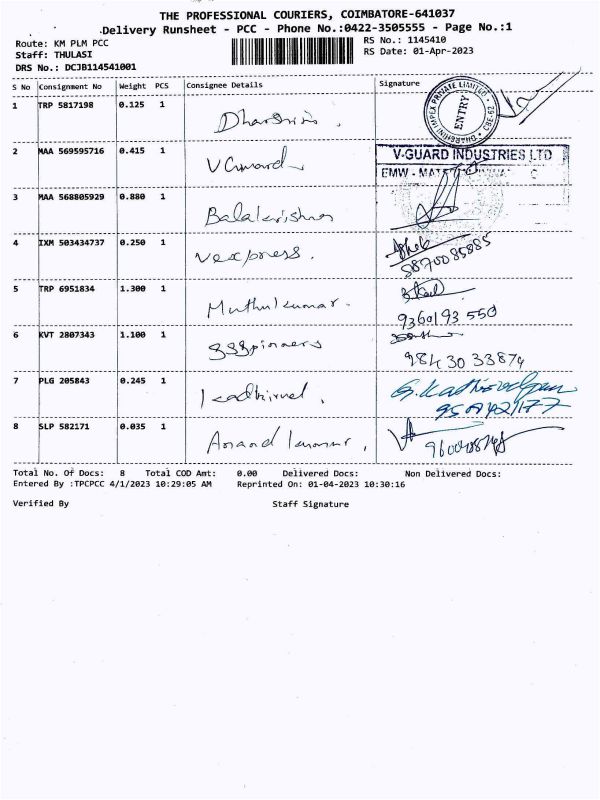 THE PROFESSIONAL COURIERS, COIMBATORE-641037
Delivery Runsheet - PCC - Phone No.:0422-3505555 - Page No.:1
Route: KM PLM PCC
Staff: THULASI
DRS No.: DCJB114541001
RS No.: 1145410
RS Date: 01-Apr-2023
S No Consignment No Weight PCS Consignee Details Signature
1 TRP 5817198 0.125 1
ENTRY
2 MAA 569595716 0.415 1 V Guard
V-GUARD INDUSTRIES LTD
EMW -
3 MAA 568805929 0.880 1 Balakrishna
4 IXM 503434737 0.250 1 Vexpress.
8870085885
5 TRP 6951834 1.300 1 Muthukumar.
9360193 550
6 KVT 2807343 1.100 1 SSSpinners
984 30 33874
7 PLG 205843 0.245 1 Kadhirvel,
8 SLP 582171 0.035 1 Anand
Total No. Of Docs: 8 Total COD Amt: 0.00 Delivered Docs: Non Delivered Docs:
Entered By :TPCPCC 4/1/2023 10:29:05 AM Reprinted On: 01-04-2023 10:30:16
Verified By Staff Signature